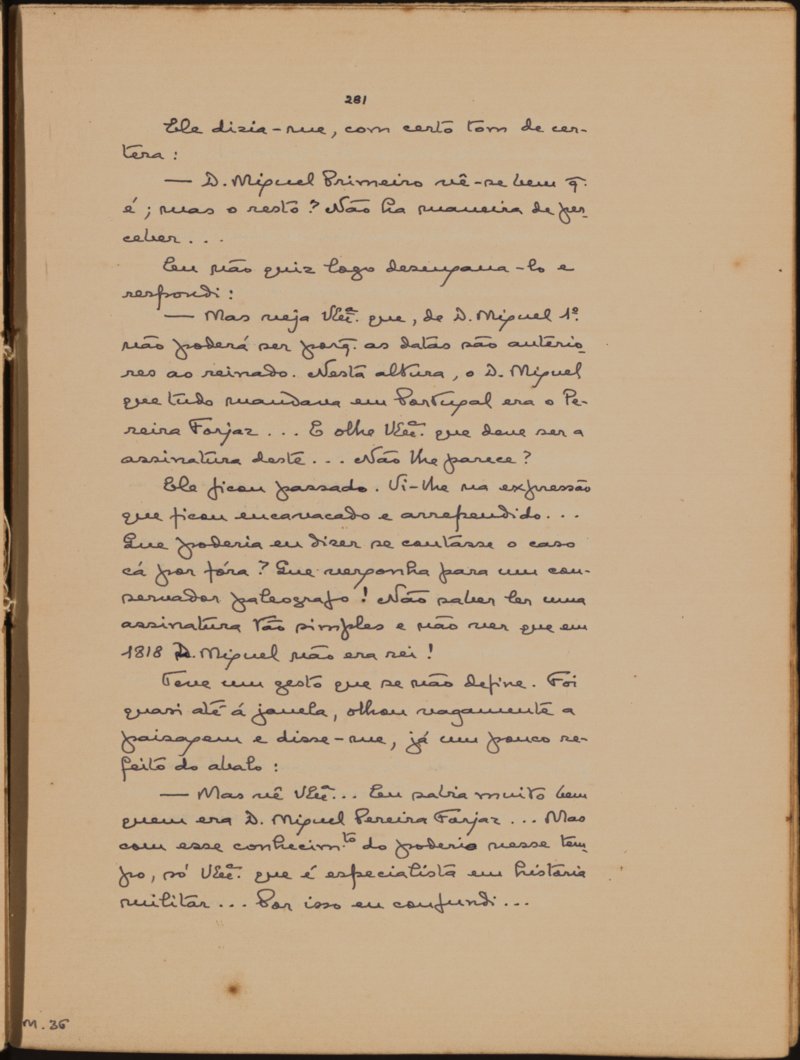 281
Ele dizia-me, com certo tom de cer-
teza:
— D. Miguel Primeiro vê-se bem q.
é; mas o resto? Não ha maneira de per-
ceber...
Eu não quiz logo desengana-lo e
respondi:
— Mas veja V.Exª. que, de D. Miguel 1º.
não poderá ser porq. as datas são anterio-
res ao reinado. Nesta altura, o D. Miguel
que tudo mandava em Portugal era o Pe-
reira Forjaz... E olhe V.Exª. que deve ser a
assinatura deste... Não lhe parece?
Ele ficou passado. Vi-lhe na expressão
que ficou encavacado e arrependido...
Que poderia eu dizer se contasse o caso
cá por fóra? Que vergonha para um con-
servador paleografo! Não saber ler uma
assinatura tão simples e não ver que em
1818 D. Miguel não era rei!
Teve um gesto que se não define. Foi
quasi até á janela, olhou vagamente a
paisagem e disse-me, já um pouco re-
feito do abalo:
— Mas vê V.Exª... Eu sabia muito bem
quem era D. Miguel Pereira Forjaz... Mas
com esse conhecim.to do poderio nesse tem-
po, só V.Exª. que é especialista em historia
militar... Por isso eu confundi...
M. 36